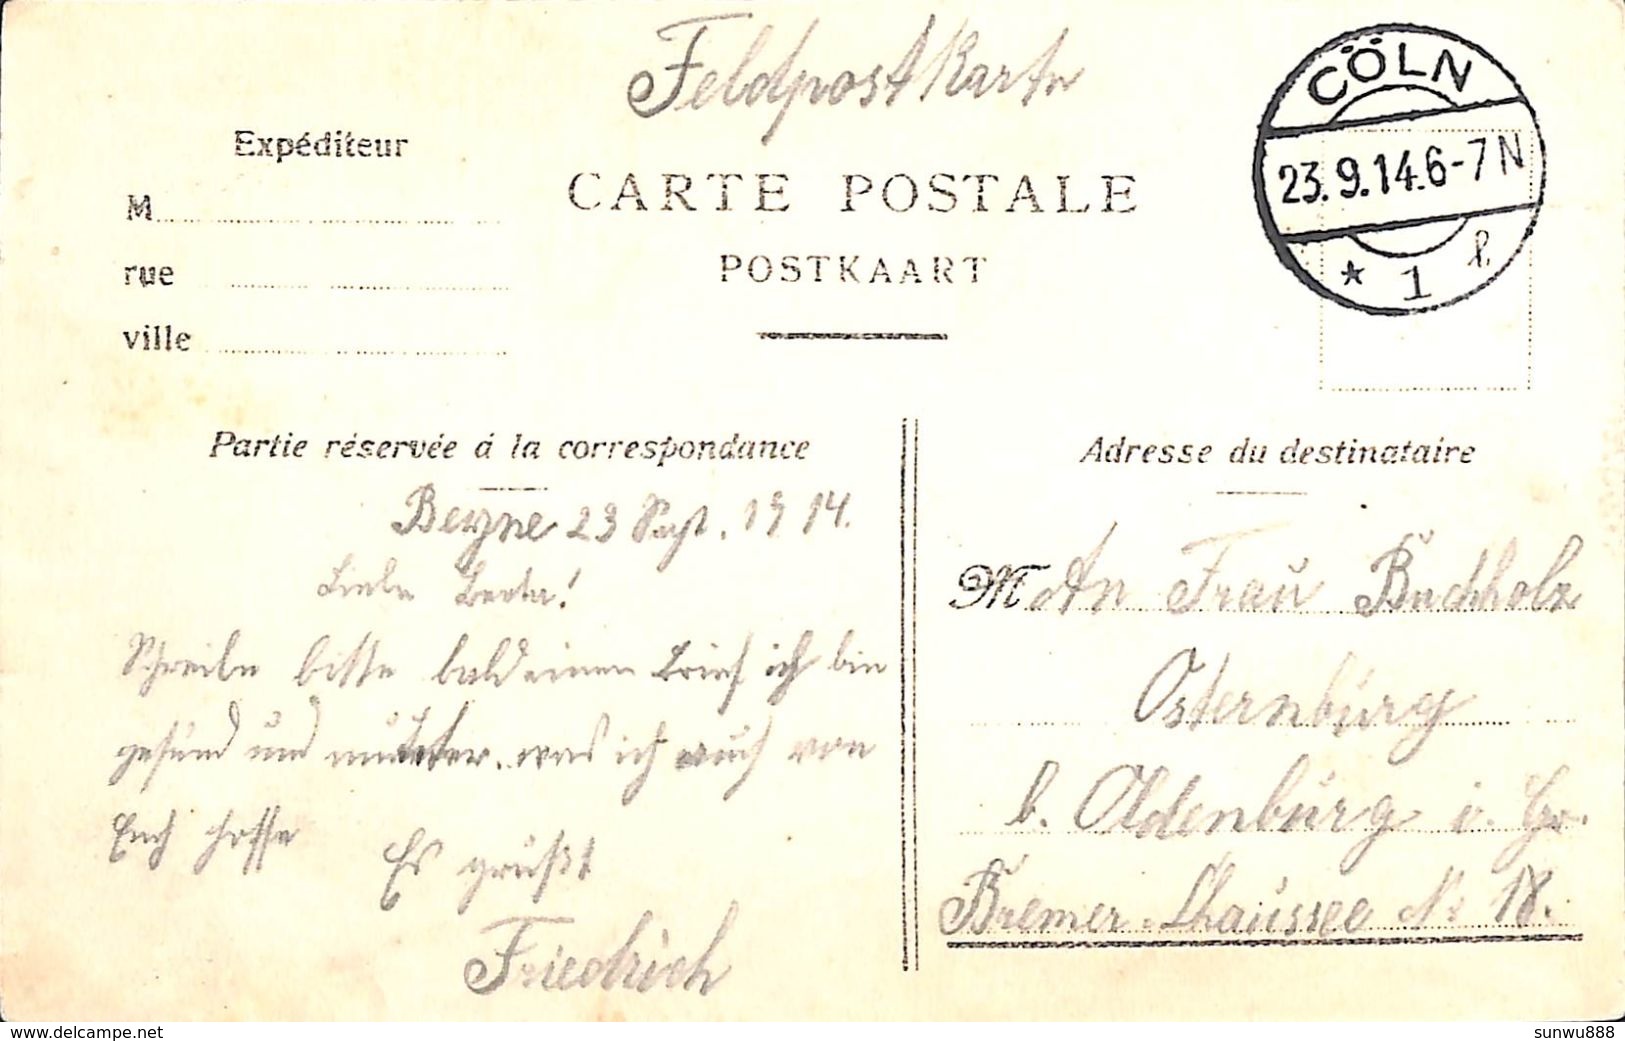 Feldpostkarte
Expéditeur
M
rue
ville
CARTE POSTALE
POSTKAART
CÖLN
23.9.14.6-7N
* 1 l.
Partie réservée à la correspondance
Adresse du destinataire
Beyne 23 Sept. 1914.
Liebe Berta!
Schreibe bitte bald einen Brief ich bin
gesund und munter. was ich auch von
Euch hoffe
Es grüßt
Friedrich
M An Frau Buchholz
Osternburg
b. Oldenburg i. Gr.
Bremer-Chaussee No 18.
www.delcampe.net
sunwu888